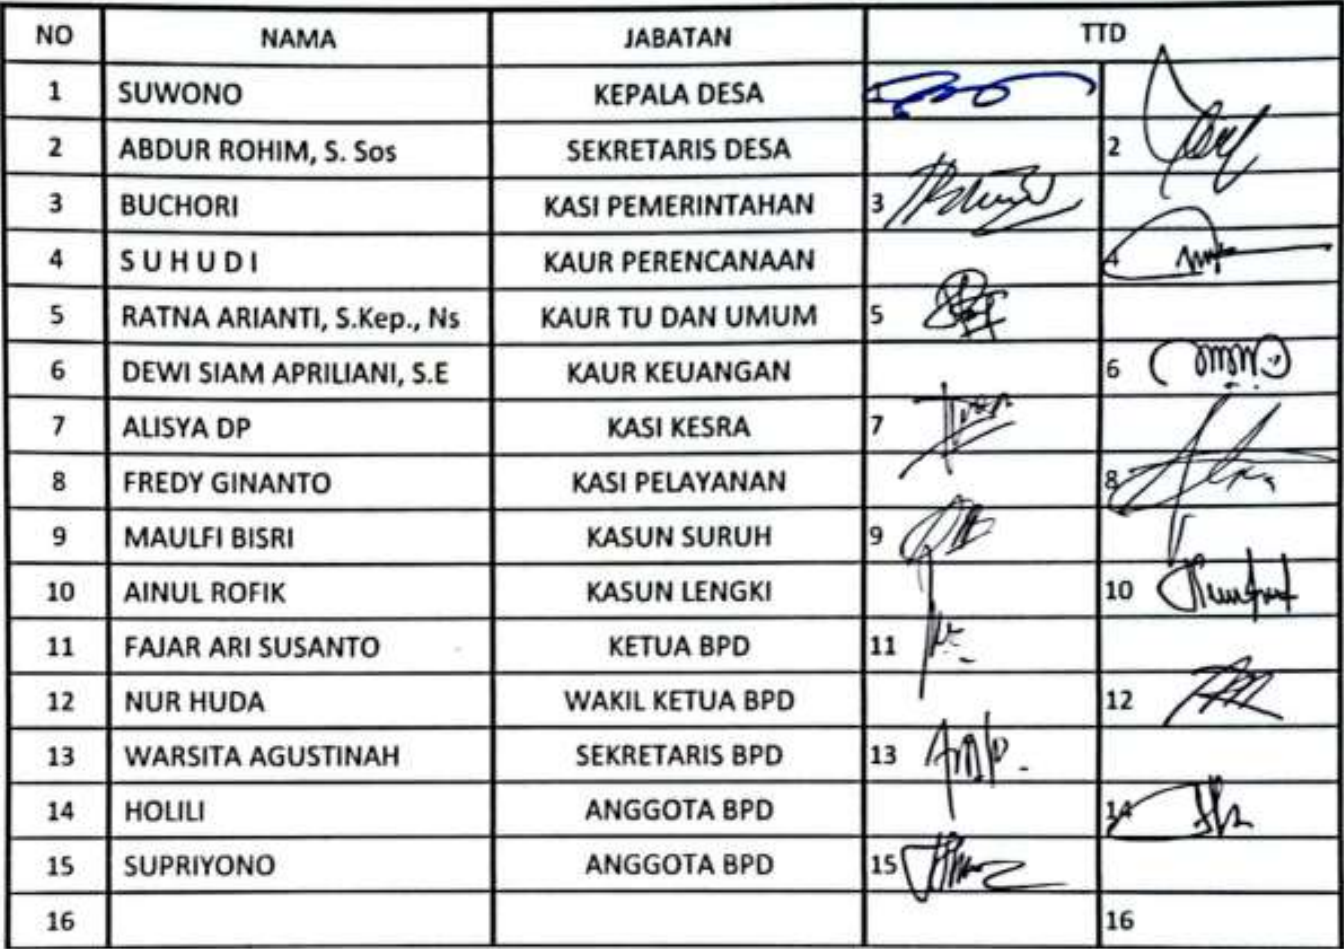 NO NAMA JABATAN TTD
1 SUWONO KEPALA DESA 1
2 ABDUR ROHIM, S. Sos SEKRETARIS DESA 2
3 BUCHORI KASI PEMERINTAHAN 3
4 S U H U D I KAUR PERENCANAAN 4
5 RATNA ARIANTI, S.Kep., Ns KAUR TU DAN UMUM 5
6 DEWI SIAM APRILIANI, S.E KAUR KEUANGAN 6
7 ALISYA DP KASI KESRA 7
8 FREDY GINANTO KASI PELAYANAN 8
9 MAULFI BISRI KASUN SURUH 9
10 AINUL ROFIK KASUN LENGKI 10
11 FAJAR ARI SUSANTO KETUA BPD 11
12 NUR HUDA WAKIL KETUA BPD 12
13 WARSITA AGUSTINAH SEKRETARIS BPD 13
14 HOLILI ANGGOTA BPD 14
15 SUPRIYONO ANGGOTA BPD 15
16 16